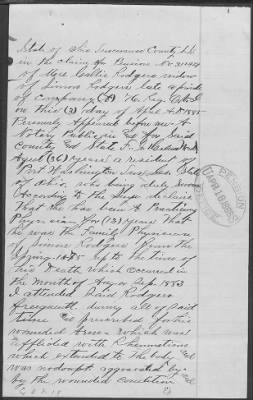 State of Ohio Tuscarawas County SS
in the claim for Pension No
of Mrs Rodgers widow
of Simon Rodgers late a private
of Company Reg
on this day of Sept A.D. 1885
Personaly Appeared before me A
Notary Public in & for said
County and State
Aged (36) years a resident of
Port Washington Tuscarawas
of Ohio, who being duly sworn
According to the Law declares
that he has been A Practicing
Physician for (13) years that
he was the Family Physician
of Simon Rodgers from the
Spring 1875 up to the time of
his Death which occurred in
the month of 1883
I attended said Rodgers
frequently during all of said
time & prescribed for his
wounded Arm which was
afflicted with Rheumatism
which extended to the body &
was no doubt aggravated by
by the wounded condition